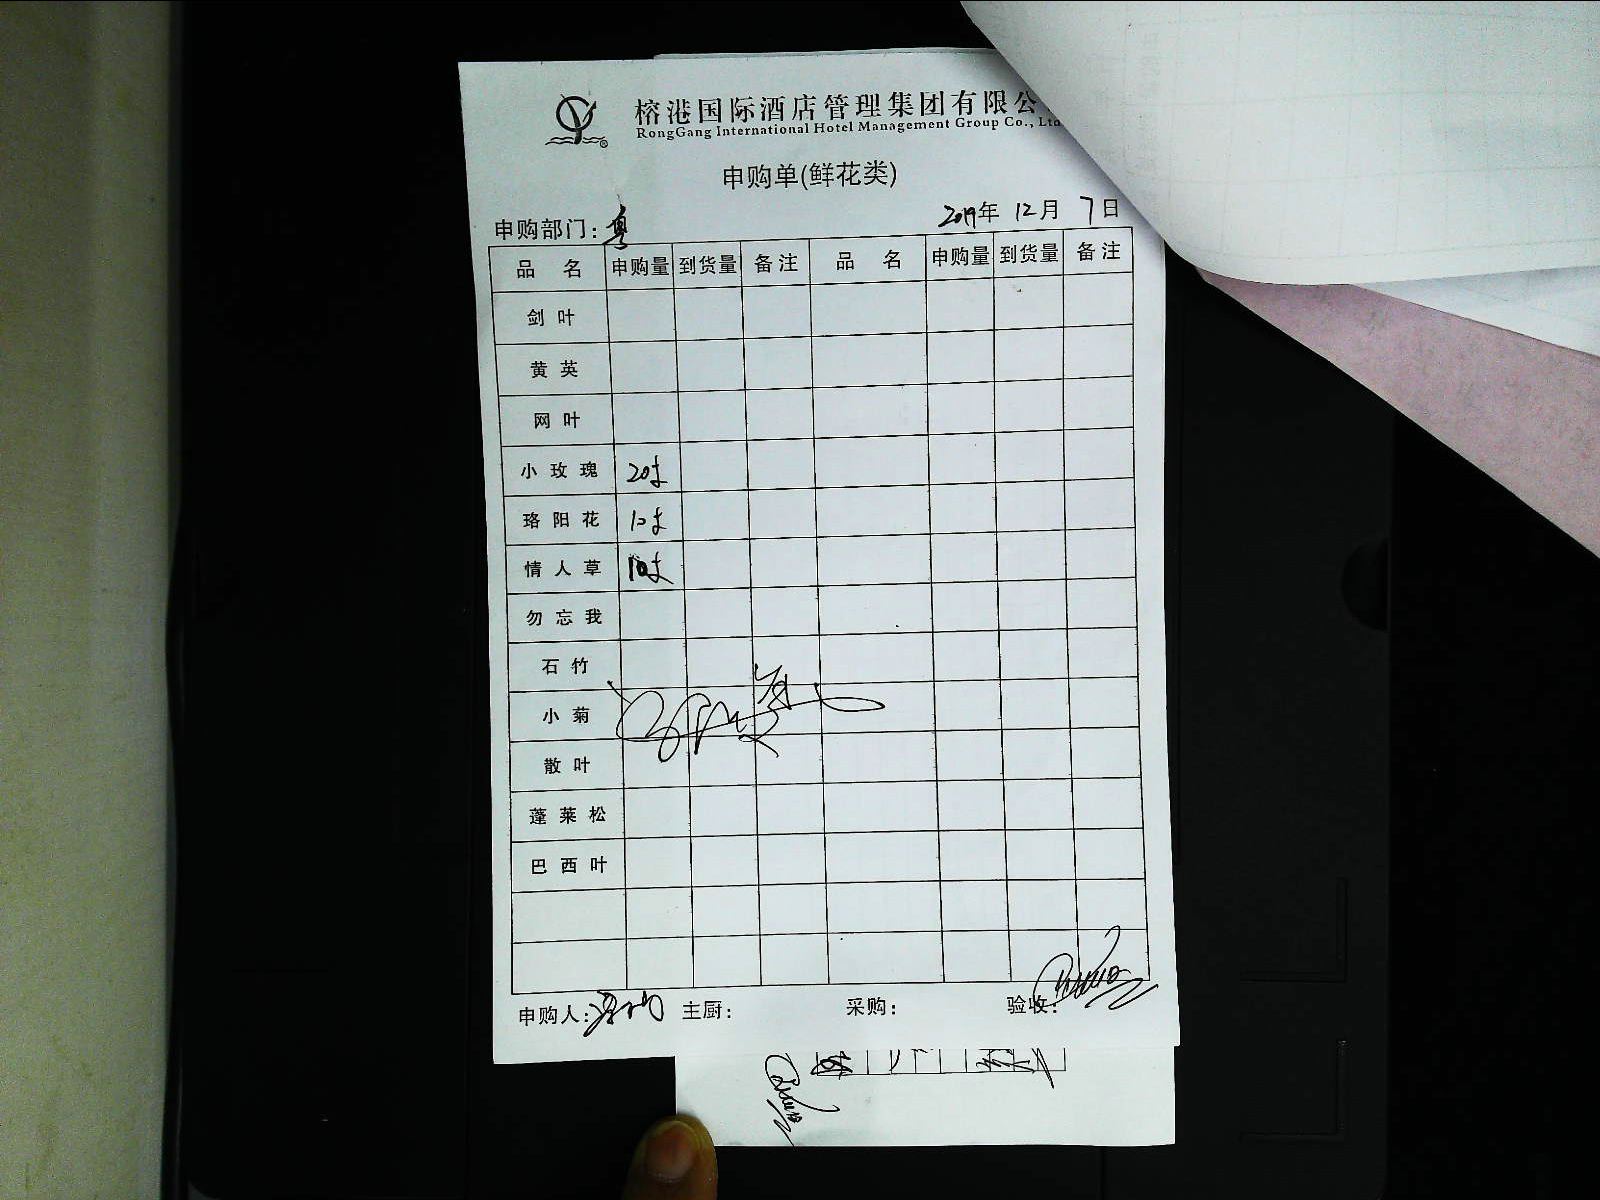 榕港国际酒店管理集团有限公
RongGang International Hotel Management Group Co., Ltd
申购单(鲜花类)
申购部门: 粤 2019年 12月 7日
品 名 申购量 到货量 备注 品 名 申购量 到货量 备注
剑叶
黄英
网叶
小玫瑰 20支
珞阳花 10支
情人草 10支
勿忘我
石竹
小菊
散叶
蓬莱松
巴西叶
申购人: 主厨: 采购: 验收: